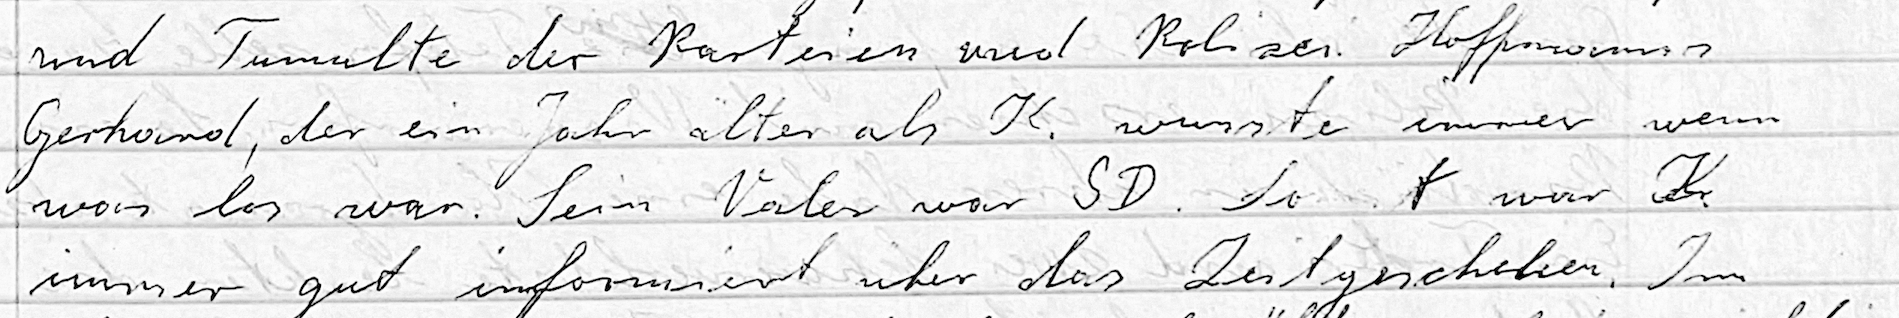 und Tumulte der Parteien und Polizei. Hoffmanns
Gerhard, der ein Jahr älter als K. wusste immer wenn
was los war. Sein Vater war SD. Somit war K.
immer gut informiert über das Zeitgeschehen. Im